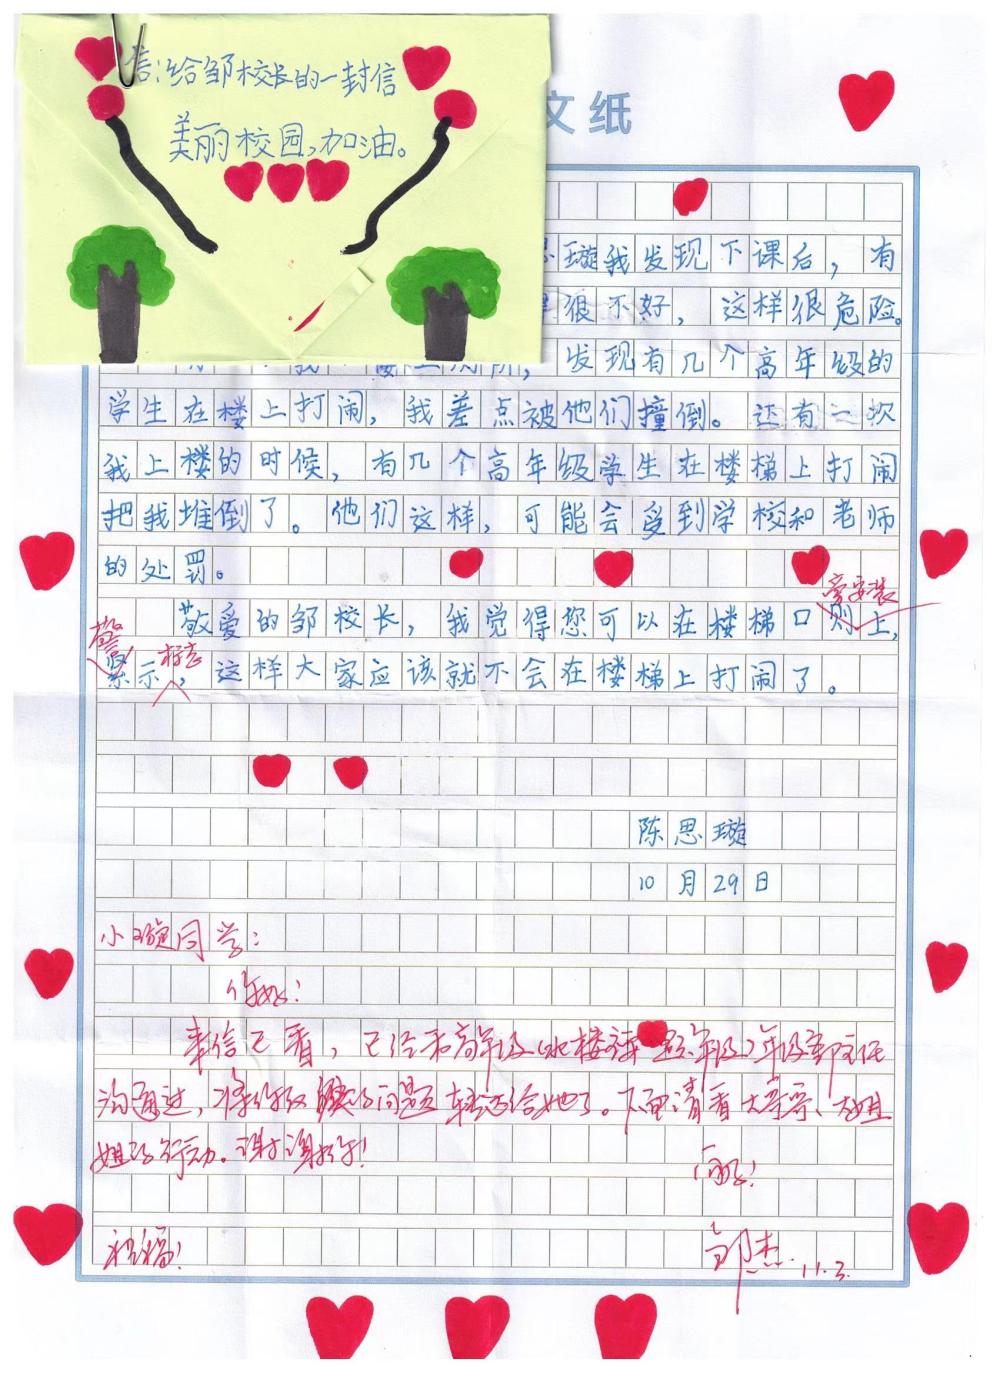 信:给邹校长的一封信
美丽校园,加油。
文纸
思璇我发现下课后，有
很不好，这样很危险。
发现有几个高年级的
学生在楼上打闹，我差点被他们撞倒。还有一次
我上楼的时候，有几个高年级学生在楼梯上打闹
把我堆倒了。他们这样，可能会受到学校和老师
的处罚。
旁安装
敬爱的邹校长，我觉得您可以在楼梯口则上，
警 标志
示，这样大家应该就不会在楼梯上打闹了。
陈思璇
10月29日
小璇同学：
你好！
来信已看，已经和高年级（北楼 年级）年级部主任
沟通过，将你反 的问题转达给她了。下面请看大哥哥、大姐
姐的行动。谢谢你！
祝福！
邹杰 11.3.